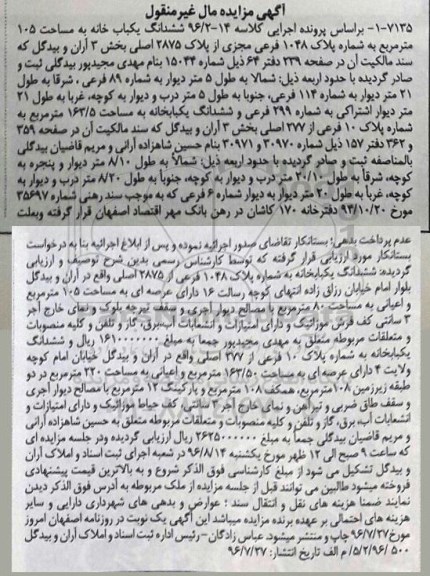 آگهی مزایده مال غیرمنقول
۱-۷۱۳۵- براساس پرونده اجرایی کلاسه ۱۴-۹۶/۲ ششدانگ یکباب خانه به مساحت ۱۰۵
مترمربع به شماره پلاک ۱۰۴۸ فرعی مجزی از پلاک ۲۸۷۵ اصلی بخش ۳ آران و بیدگل که
سند مالکیت آن در صفحه ۲۳۹ دفتر ۶۴ ذیل شماره ۱۵۰۴۴ بنام مهدی مجیدپور بیدگلی ثبت و
صادر گردیده با حدود اربعه ذیل: شمالا به طول ۵ متر دیوار به شماره ۸۹ فرعی , شرقا به طول
۲۱ متر دیوار به شماره ۱۱۴ فرعی، جنوبا به طول ۵ متر درب و دیوار به کوچه، غربا به طول ۲۱
متر دیوار اشتراکی به شماره ۲۹۹ فرعی و ششدانگ یکبابخانه به مساحت ۱۶۳/۵ مترمربع به
شماره پلاک ۱۰ فرعی از ۲۷۷ اصلی بخش ۳ آران و بیدگل که سند مالکیت آن در صفحه ۳۵۹
و ۳۶۲ دفتر ۱۵۷ ذیل شماره ۳۰۹۷۰ و ۳۰۹۷۱ بنام حسین شاهزاده آرانی و مریم قاضیان بیدگلی
بالمناصفه ثبت و صادر گردیده با حدود اربعه ذیل: شمالاً به طول ۸/۱۰ متر دیوار و پنجره به
کوچه، شرقا به طول ۲۰/۱۰ متر درب و دیوار به کوچه، جنوبا به طول ۸/۲۰ متر درب و دیوار به
کوچه، غربا به طول ۲۰ متر دیوار به دیوار شماره ۶ فرعی که به موجب سند رهنی شماره ۳۵۶۹۷
مورخ ۹۴/۱۰/۲۰ دفترخانه ۱۷۰ کاشان در رهن بانک مهر اقتصاد اصفهان قرار گرفته وبعلت
عدم پرداخت بدهی؛ بستانکار تقاضای صدور اجرائیه نموده و پس از ابلاغ اجرائیه بنا به درخواست
بستانکار مورد ارزیابی قرار گرفته که توسط کارشناس رسمی بدین شرح توصیف و ارزیابی
گردیده: ششدانگ یکبابخانه به شماره پلاک ۱۰۴۸ فرعی از ۲۸۷۵ اصلی واقع در آران و بیدگل
بلوار امام خیابان رزاق زاده انتهای کوچه رسالت ۱۶ دارای عرصه ای به مساحت ۱۰۵ مترمربع
و اعیانی به مساحت ۸۰ مترمربع با مصالح دیوار آجری و سقف تیرچه بلوک و نمای خارج آجر
۳ سانتی کف فرش موزائیک و دارای امتیازات و انشعابات آب،برق، گاز و تلفن و کلیه منصوبات
و متعلقات مربوطه متعلق به مهدی مجیدپور جمعا به مبلغ ۱۶۱۰۰۰۰۰۰۰ ریال و ششدانگ
یکبابخانه به شماره پلاک ۱۰ فرعی از ۲۷۷ اصلی واقع در آران و بیدگل خیابان امام کوچه
ولایت ۴ دارای عرصه ای به مساحت ۱۶۳/۵۰ مترمربع و اعیانی به مساحت ۲۲۰ مترمربع در دو
طبقه زیرزمین ۱۰۸ مترمربع، همکف ۱۰۸ مترمربع و پارکینگ ۱۲ مترمربع با مصالح دیوار آجری
و سقف طاق ضربی و تیرآهن و نمای خارج آجر ۳ سانتی، کف حیاط موزائیک و دارای امتیازات و
انشعابات آب، برق، گاز و تلفن و کلیه منصوبات و متعلقات مربوطه متعلق به حسین شاهزاده آرانی
و مریم قاضیان بیدگلی جمعاً به مبلغ ۲۶۲۵۰۰۰۰۰۰ ریال ارزیابی گردیده ودر جلسه مزایده ای
که ساعت ۹ صبح الی ۱۲ ظهر مورخ یکشنبه ۹۶/۸/۱۴ در شعبه اجرای ثبت اسناد و املاک آران
و بیدگل تشکیل می شود از مبلغ کارشناسی فوق الذکر شروع و به بالاترین قیمت پیشنهادی
فروخته میشود طالبین می توانند قبل از جلسه مزایده از ملک مربوطه به آدرس فوق الذکر دیدن
نمایند ضمنا هزینه های نقل و انتقال سند ؛ عوارض و بدهی های شهرداری دارایی و سایر
هزینه های احتمالی بر عهده برنده مزایده میباشد این آگهی یک نوبت در روزنامه اصفهان امروز
مورخ ۹۶/۷/۲۷ چاپ و منتشر میشود. عباس زادگان – رئیس اداره ثبت اسناد و املاک آران و بیدگل
۵/۲/۹۶/ ۵۰۰ م الف تاریخ انتشار: ۹۶/۷/۲۷